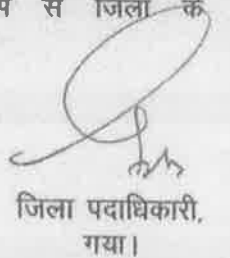 से जिला के
जिला पदाधिकारी,
गया।